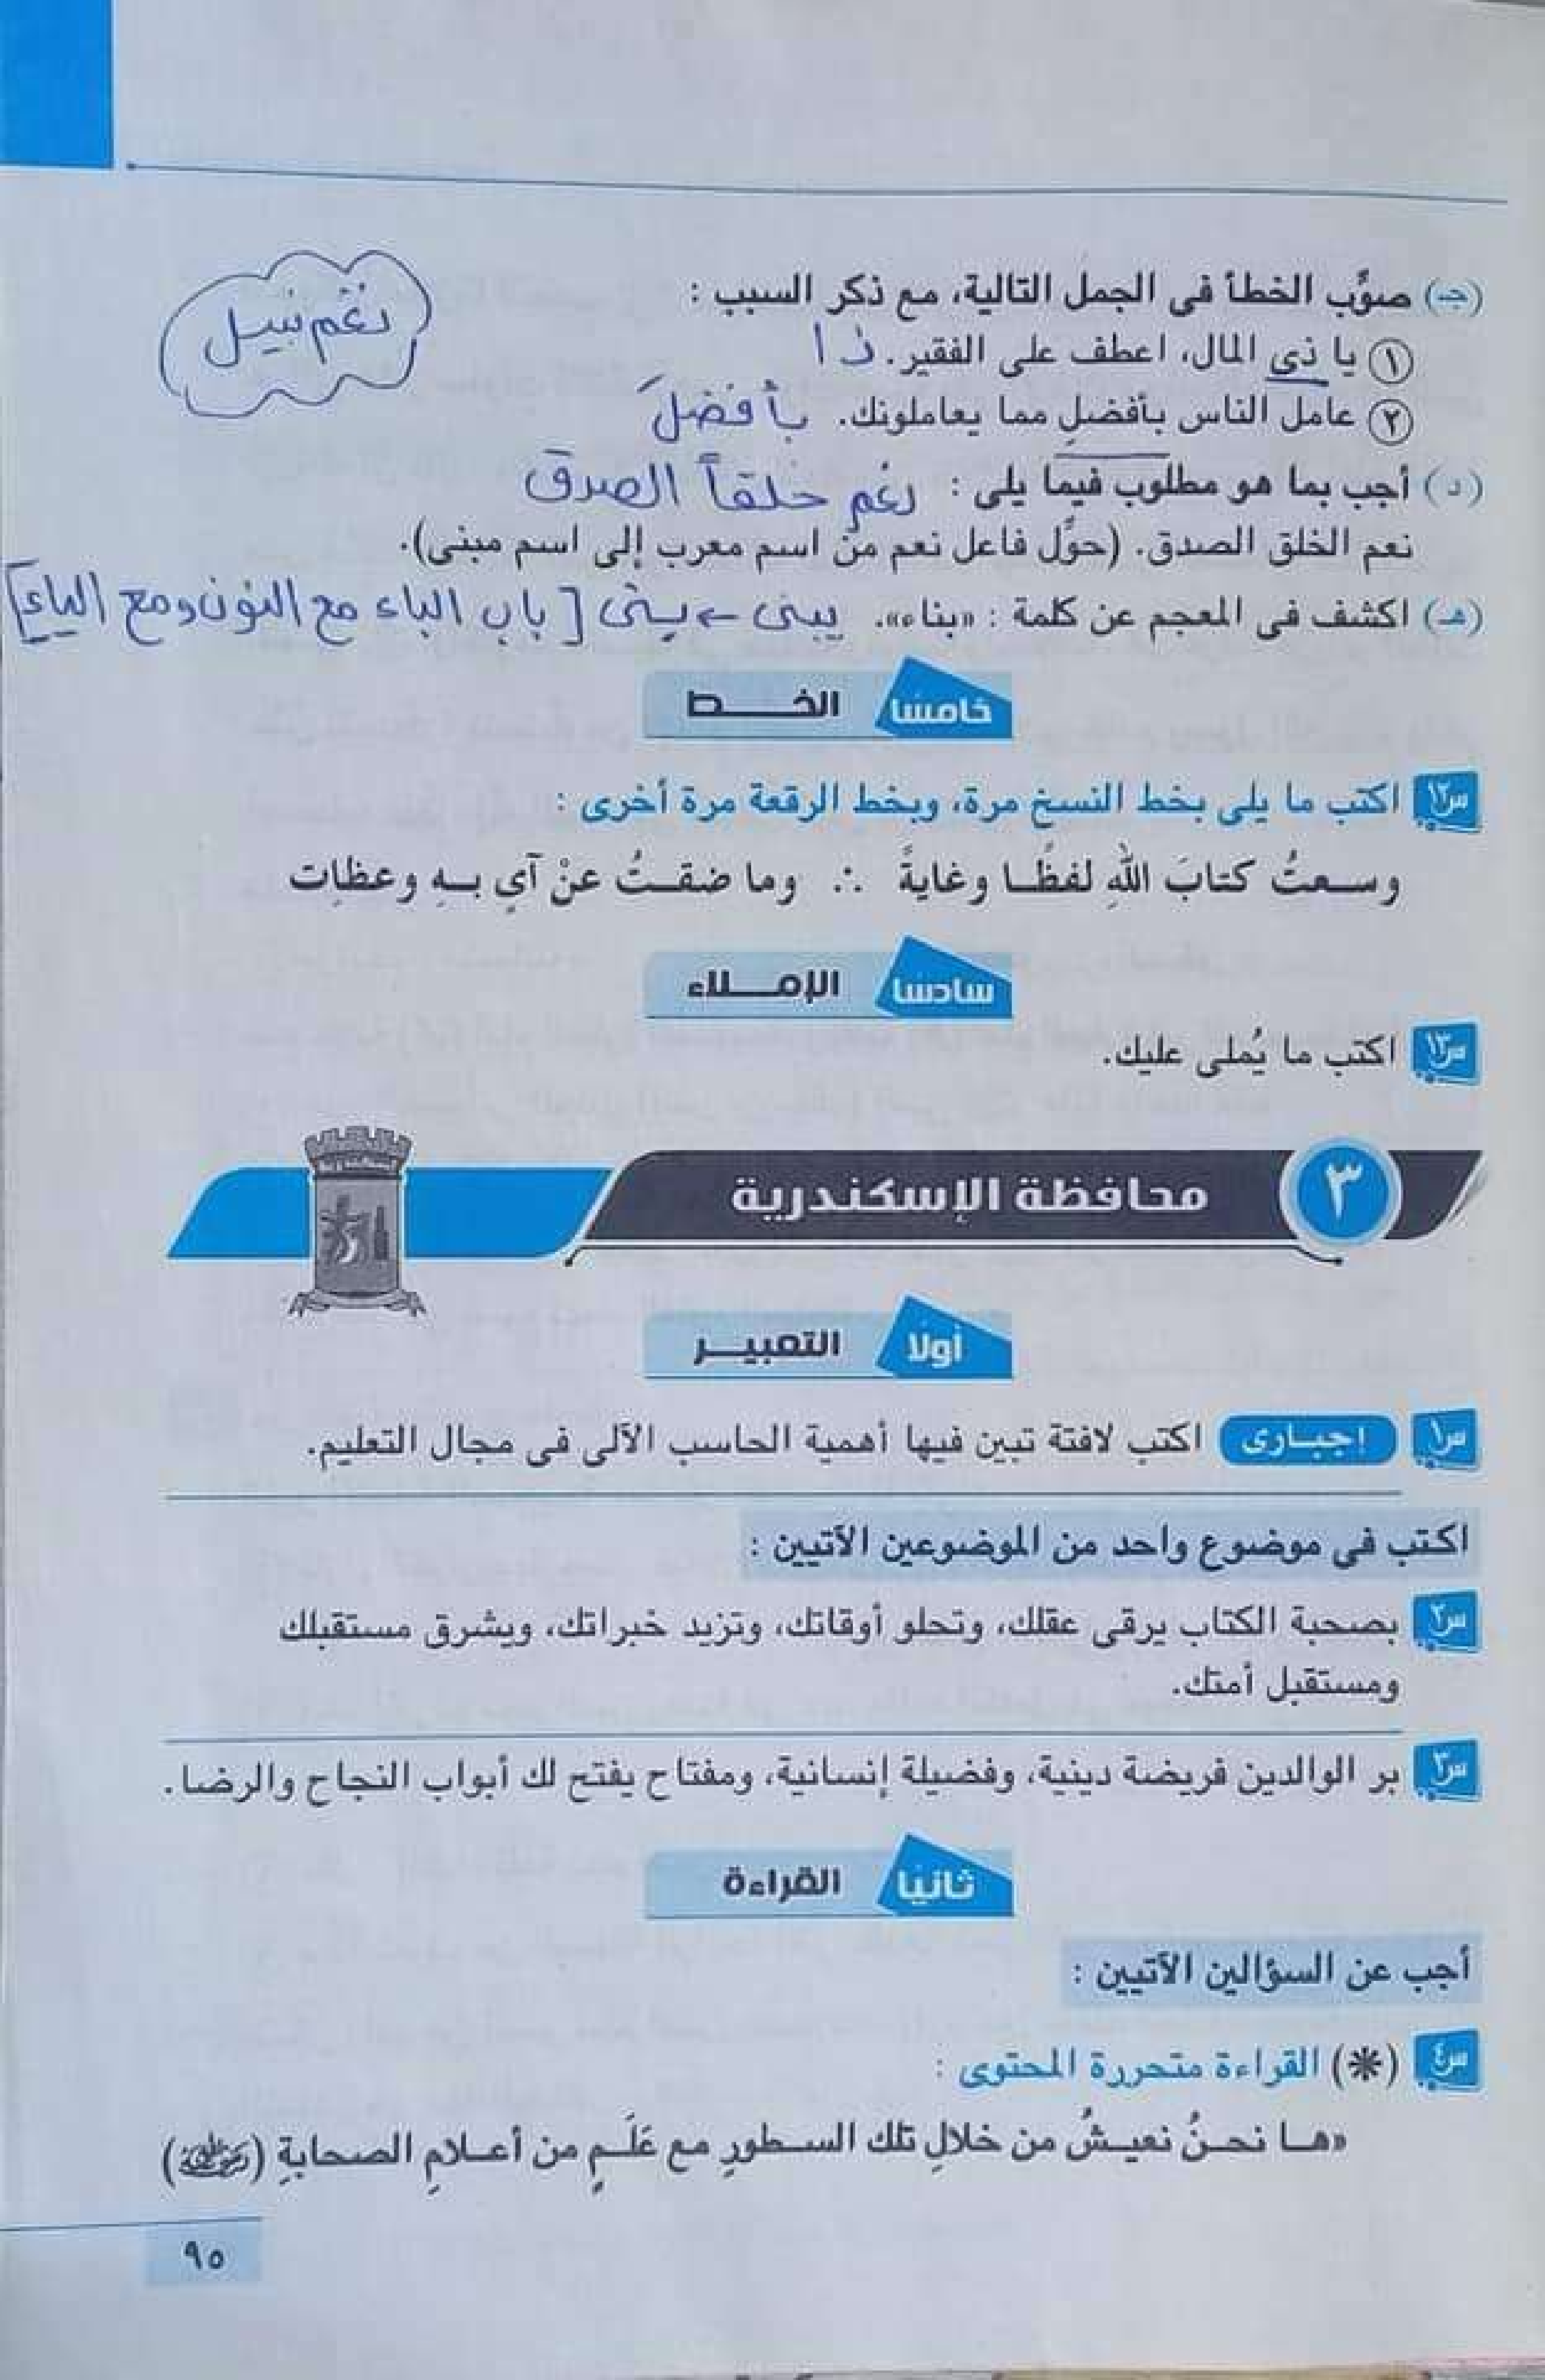 (جـ) صوِّب الخطأ فى الجمل التالية، مع ذكر السبب :
نغم نبيل
١ يا ذى المال، اعطف على الفقير. ذا
٢ عامل الناس بأفضلِ مما يعاملونك. بأفضلَ
(د) أجب بما هو مطلوب فيما يلى : نعم خلقاً الصدق
نعم الخلق الصدق. (حوِّل فاعل نعم من اسم معرب إلى اسم مبنى).
(هـ) اكشف فى المعجم عن كلمة : «بناء». يبنى ← بنى [باب الباء مع النون ومع الياء]
خامسًا الخـــط
س١٢ اكتب ما يلى بخط النسخ مرة، وبخط الرقعة مرة أخرى :
وسعتُ كتابَ اللهِ لفظًا وغايةً ∴ وما ضقتُ عنْ آىٍ بهِ وعظاتِ
سادسًا الإمـــلاء
س١٣ اكتب ما يُملى عليك.
٣ محافظة الإسكندرية
أولًا التعبيـــر
س١ إجبـارى اكتب لافتة تبين فيها أهمية الحاسب الآلى فى مجال التعليم.
اكتب فى موضوع واحد من الموضوعين الآتيين :
س٢ بصحبة الكتاب يرقى عقلك، وتحلو أوقاتك، وتزيد خبراتك، ويشرق مستقبلك
ومستقبل أمتك.
س٣ بر الوالدين فريضة دينية، وفضيلة إنسانية، ومفتاح يفتح لك أبواب النجاح والرضا.
ثانيًا القراءة
أجب عن السؤالين الآتيين :
س٤ (*) القراءة متحررة المحتوى :
«ها نحنُ نعيشُ من خلالِ تلك السطورِ مع عَلَمٍ من أعلامِ الصحابةِ (رضي الله عنهم)
٩٥